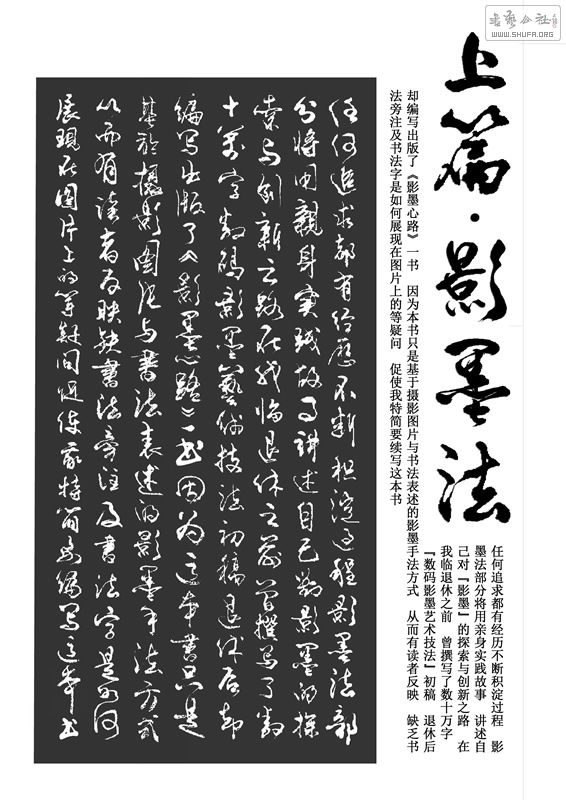 书艺公社
WWW.SHUFA.ORG
上篇·影墨法
任何追求都有经历不断积淀过程 影
墨法部分将用亲身实践故事 讲述自
己对『影墨』的探索与创新之路 在
我临退休之前 曾撰写了数十万字
『数码影墨艺术技法』初稿 退休后
却编写出版了《影墨心路》一书 因为本书只是基于摄影图片与书法表述的影墨手法方式 从而有读者反映 缺乏书
法旁注及书法字是如何展现在图片上的等疑问 促使我特简要续写这本书
任何追求都有经历不断积淀过程影墨法部
分将用亲身实践故事讲述自己对影墨的探
索与创新之路在我临退休之前曾撰写了数
十万字数码影墨艺术技法初稿退休后却
编写出版了《影墨心路》一书因为这本书只是
基于摄影图片与书法表述的影墨手法方式
从而有读者反映缺书法旁注及书法字是如何
展现在图片上的等疑问促使我特简要编写这本书